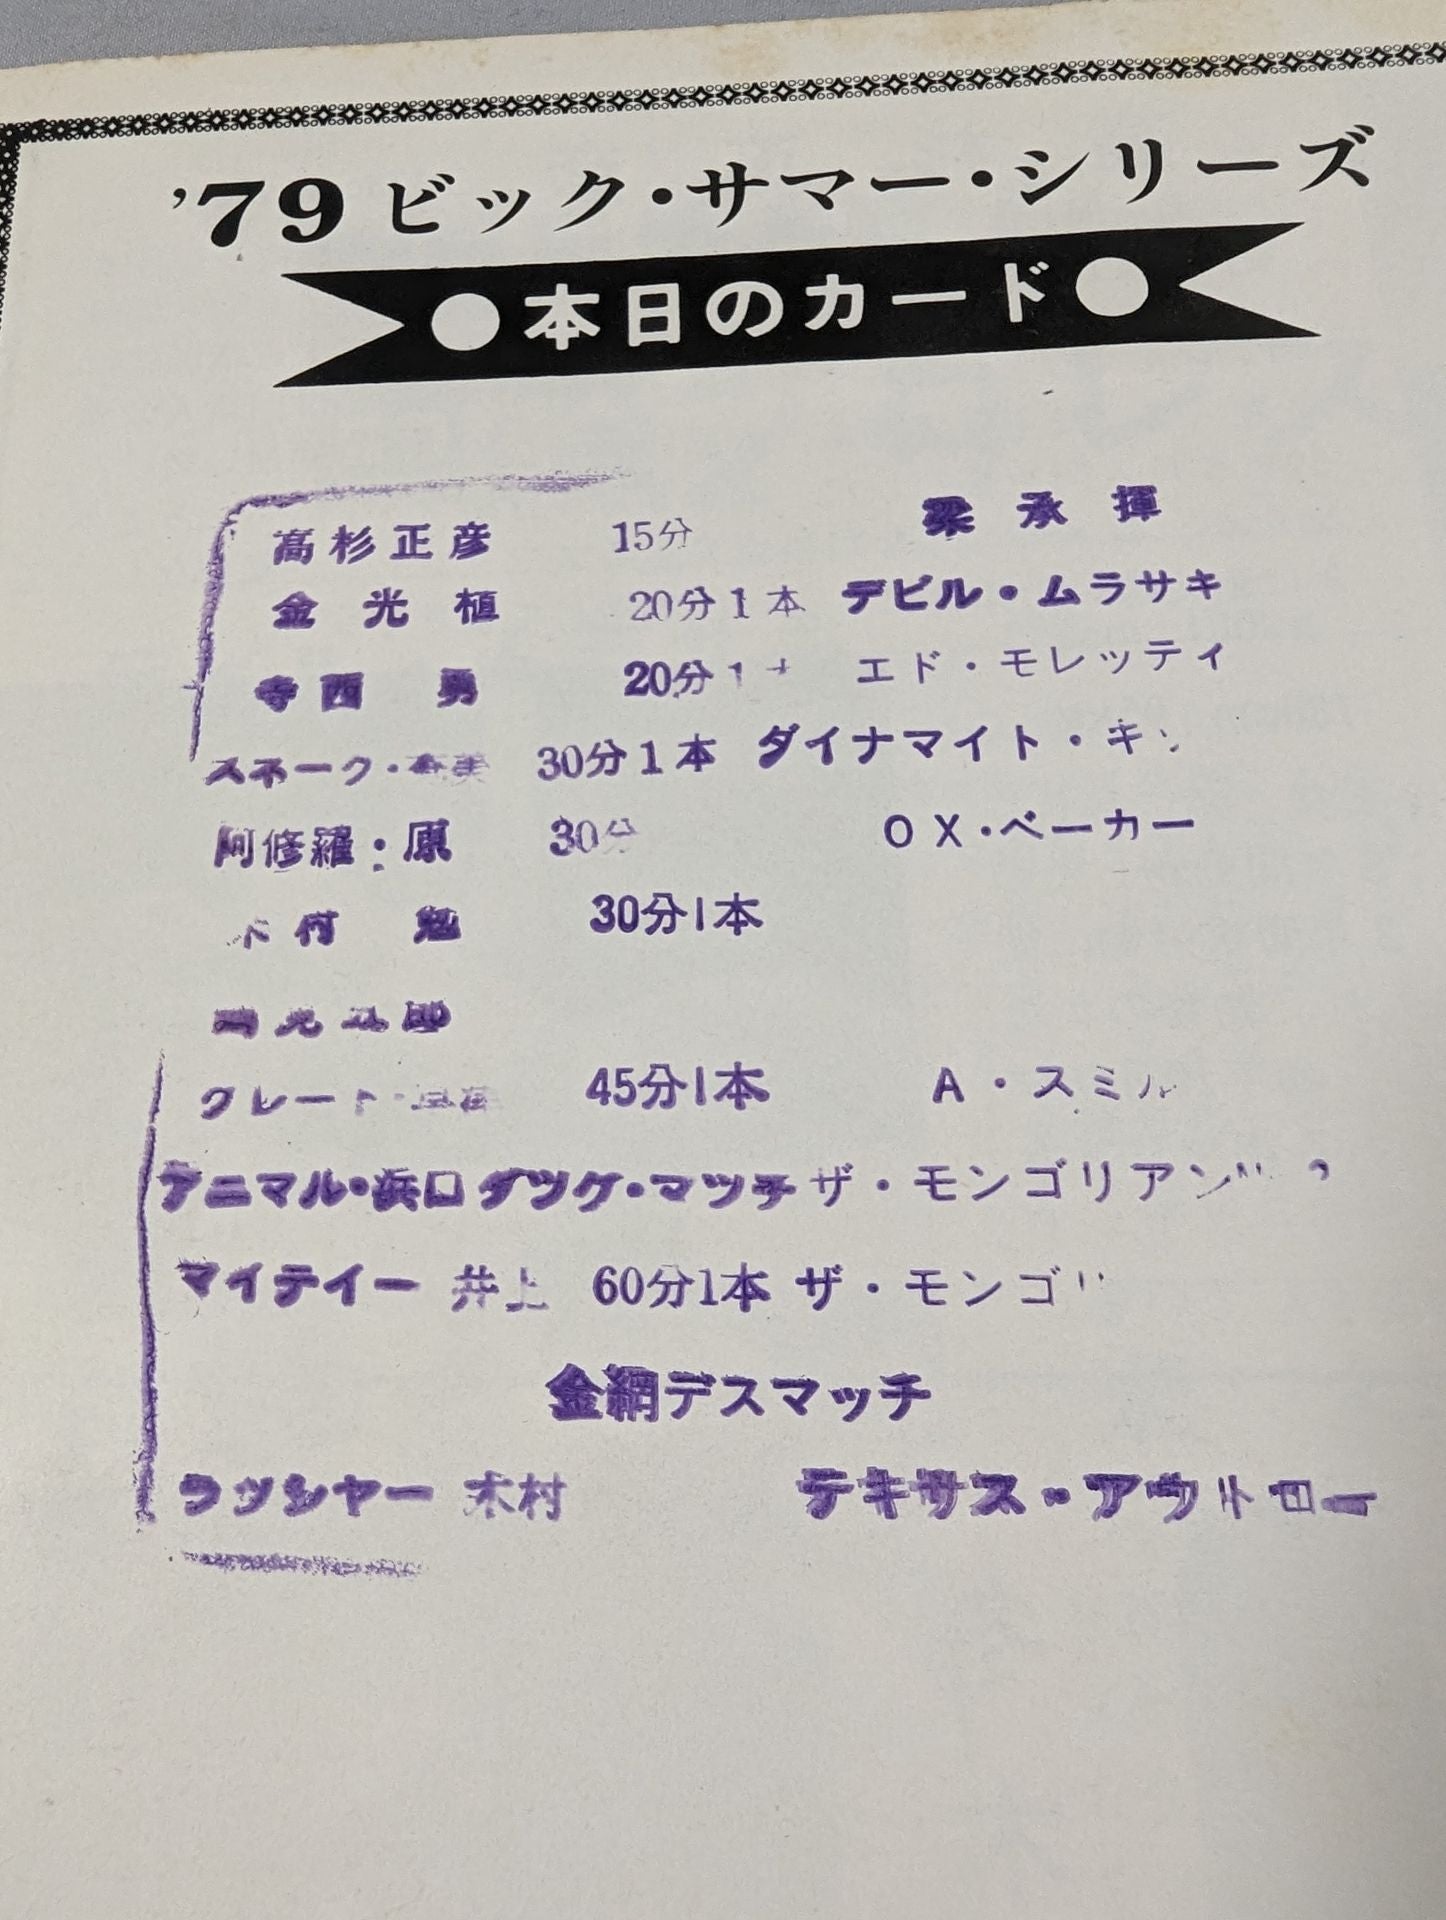 '79 ビック・サマー・シリーズ
●本日のカード●
高杉正彦 15分 梁承揮
金光植 20分1本 デビル・ムラサキ
寺西 勇 20分1 エド・モレッティ
スネーク・奄美 30分1本 ダイナマイト・キ
阿修羅・原 30分 OX・ベーカー
木村 30分1本
グレート・ 45分1本 A・スミル
アニマル・浜口 ダッグ・マッチ ザ・モンゴリアン
マイティー 井上 60分1本 ザ・モンゴリ
金網デスマッチ
ラッシャー 木村 テキサス・アウトロー